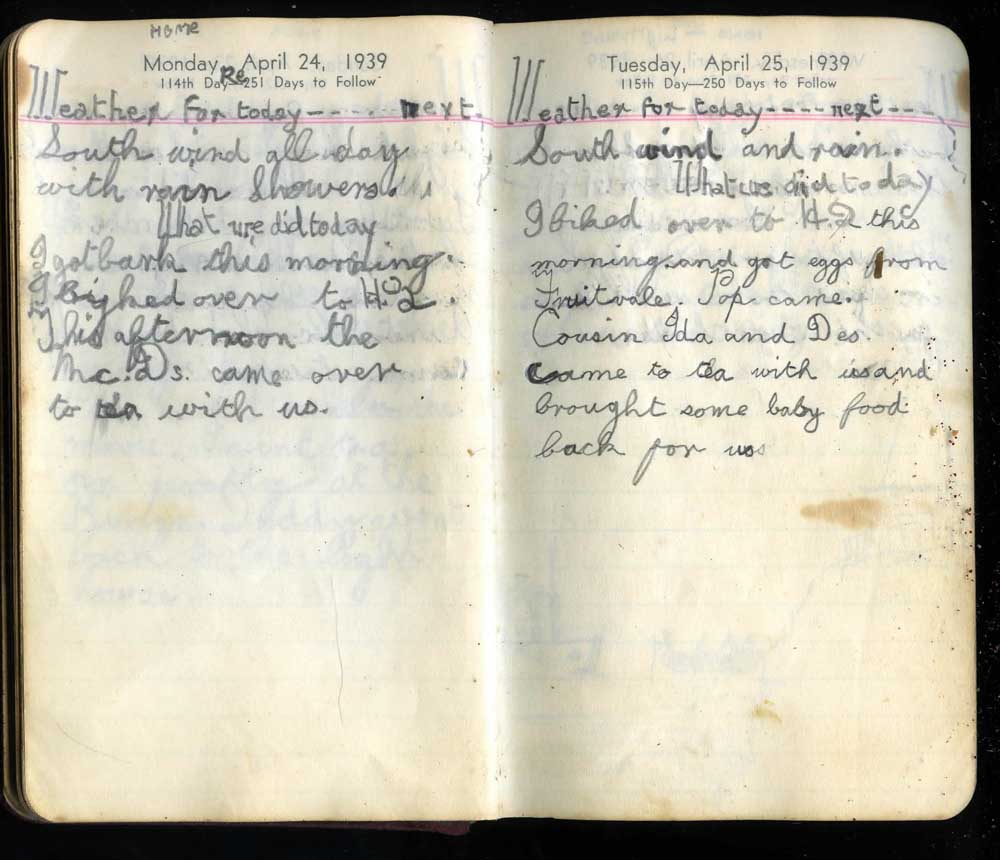 HOME
Monday, April 24, 1939
Re
114th Day—251 Days to Follow
Weather for today----- next
South wind all day
with rain showers.
What we did today
I got bark this morning.
I Biyked over to H.Q.
This afternoon the
Mc.Ds. came over
to tea with us.
Tuesday, April 25, 1939
115th Day—250 Days to Follow
Weather for today---- next --
South wind and rain.
What us did today
I biked over to H.Q this
morning and got eggs from
Fruitvale. Pop came.
Cousin Ida and Des.
came to tea with us and
brought some baby food
back for us